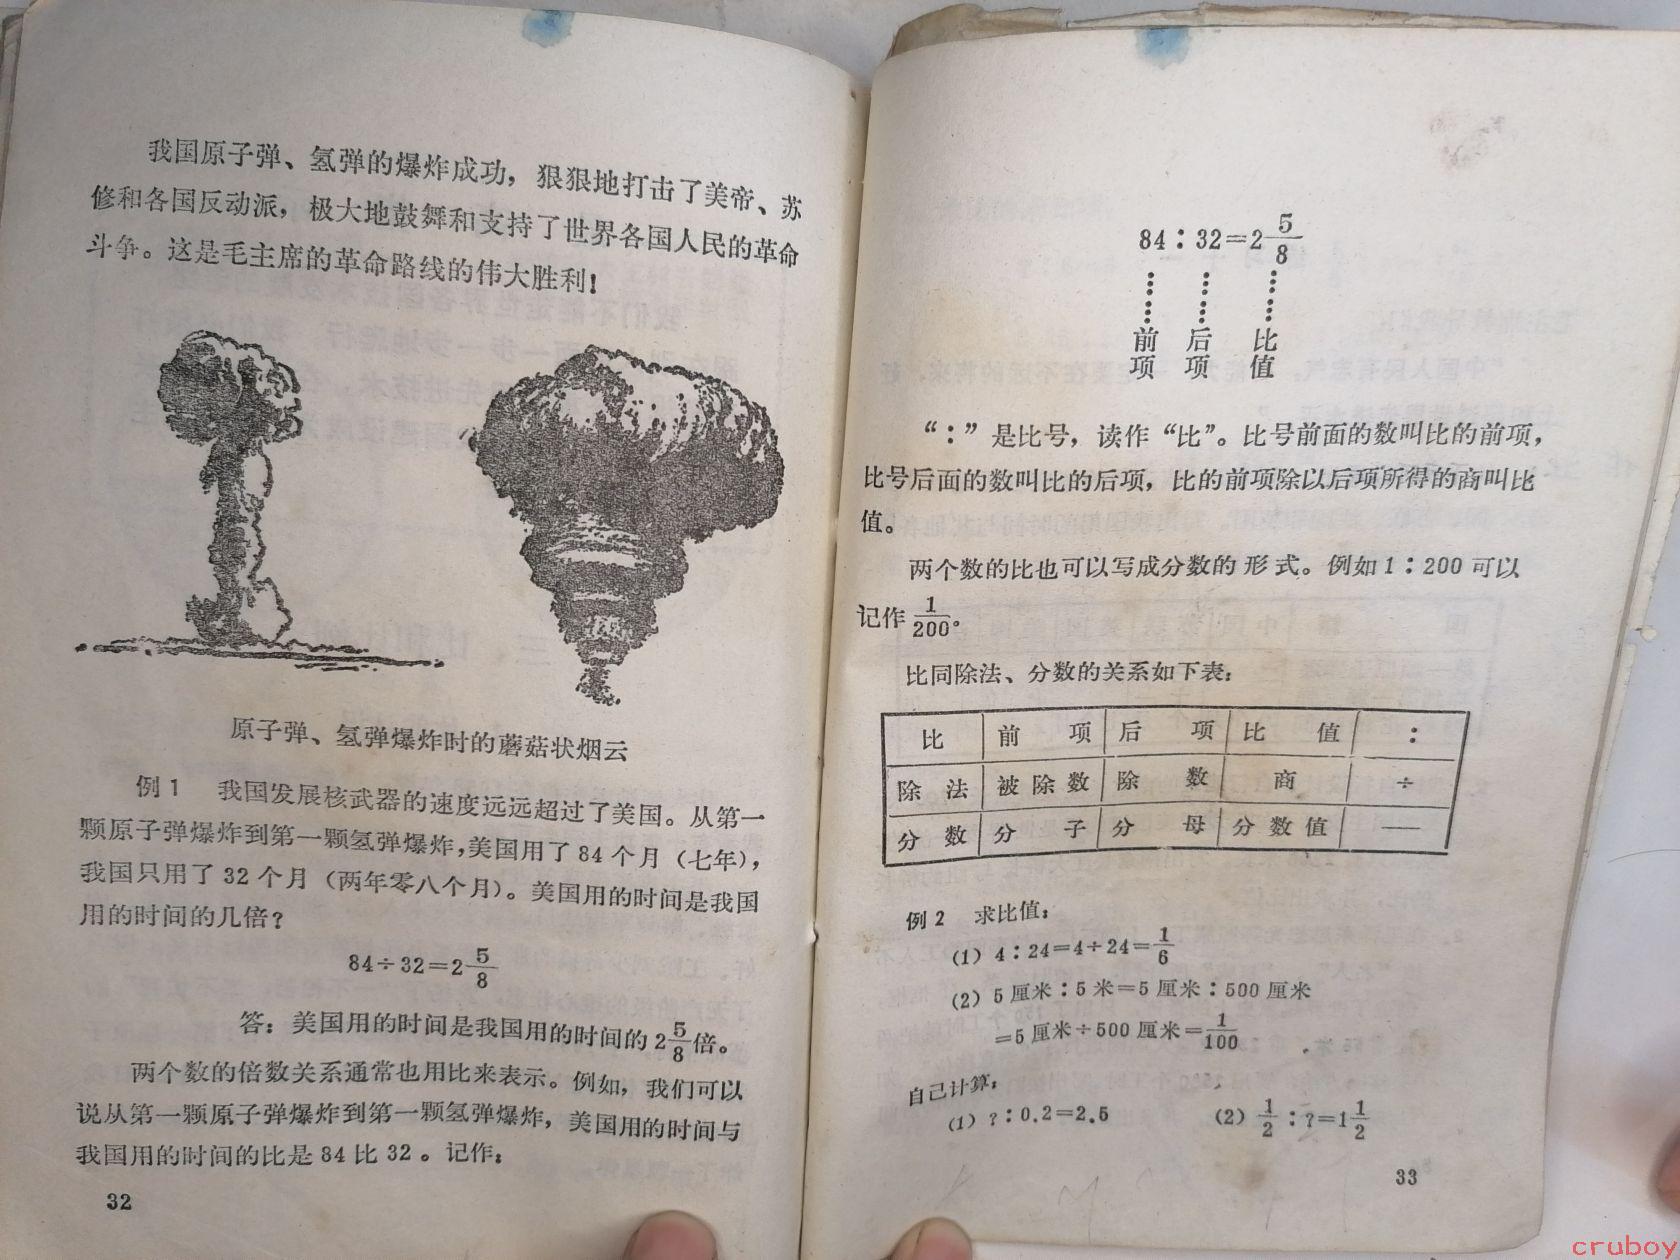 我国原子弹、氢弹的爆炸成功，狠狠地打击了美帝、苏
修和各国反动派，极大地鼓舞和支持了世界各国人民的革命
斗争。这是毛主席的革命路线的伟大胜利！
原子弹、氢弹爆炸时的蘑菇状烟云
例1 我国发展核武器的速度远远超过了美国。从第一
颗原子弹爆炸到第一颗氢弹爆炸，美国用了84个月（七年），
我国只用了32个月（两年零八个月）。美国用的时间是我国
用的时间的几倍？
84÷32=2 5/8
答：美国用的时间是我国用的时间的2 5/8倍。
两个数的倍数关系通常也用比来表示。例如，我们可以
说从第一颗原子弹爆炸到第一颗氢弹爆炸，美国用的时间与
我国用的时间的比是84比32。记作：
32
84：32=2 5/8
前项 后项 比值
“：”是比号，读作“比”。比号前面的数叫比的前项，
比号后面的数叫比的后项，比的前项除以后项所得的商叫比
值。
两个数的比也可以写成分数的形式。例如1：200可以
记作1/200。
比同除法、分数的关系如下表：
比 前项 后项 比值 ：
除法 被除数 除数 商 ÷
分数 分子 分母 分数值 —
例2 求比值：
（1）4：24=4÷24=1/6
（2）5厘米：5米=5厘米：500厘米
=5厘米÷500厘米=1/100
自己计算：
（1）?：0.2=2.5 （2）1/2：?=1 1/2
33
cruboy